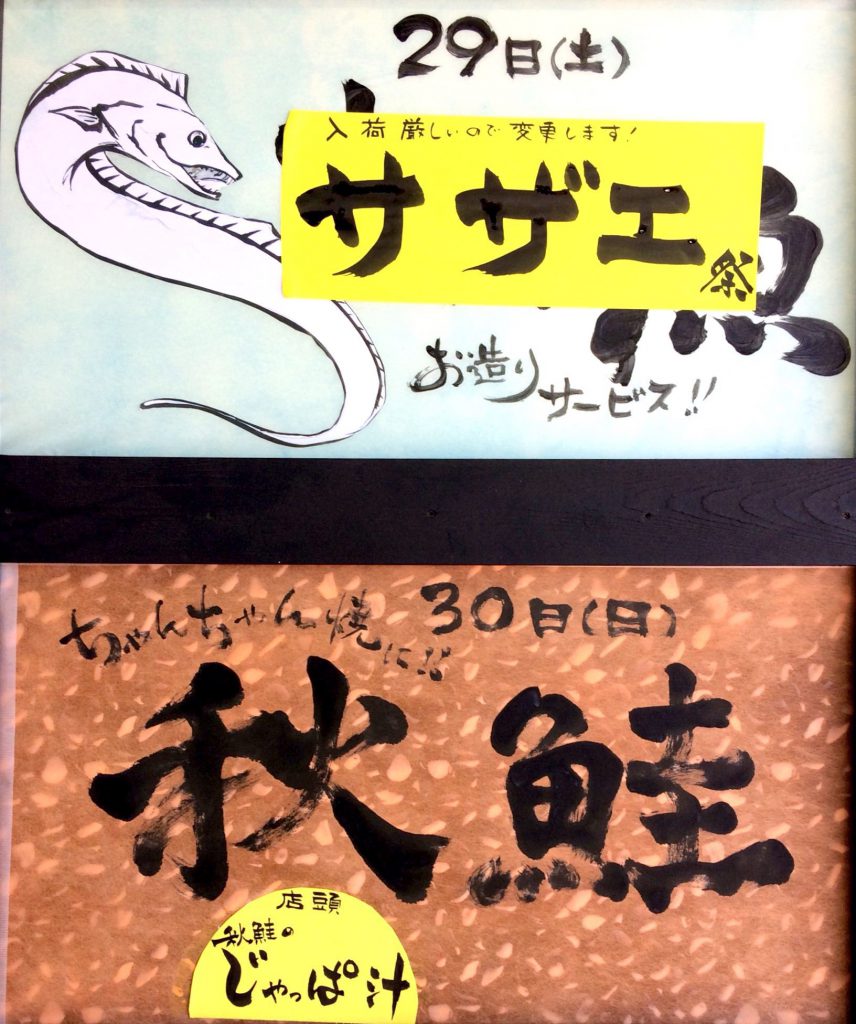 29日(土)
入荷厳しいので変更します!
サザエ祭
魚
お造り
サービス!!
ちゃんちゃん焼に!!
30日(日)
秋鮭
店頭
秋鮭の
じゃっぱ汁